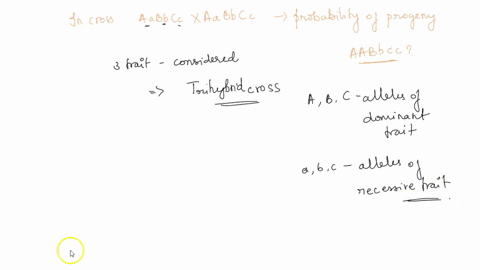 In cross AaBbCc X AaBbCc → probability of progeny
AABbCc?
3 trait - considered
⇒ Trihybrid cross
A, B, C - alleles of
dominant
trait
a, b, c - alleles of
recessive trait.